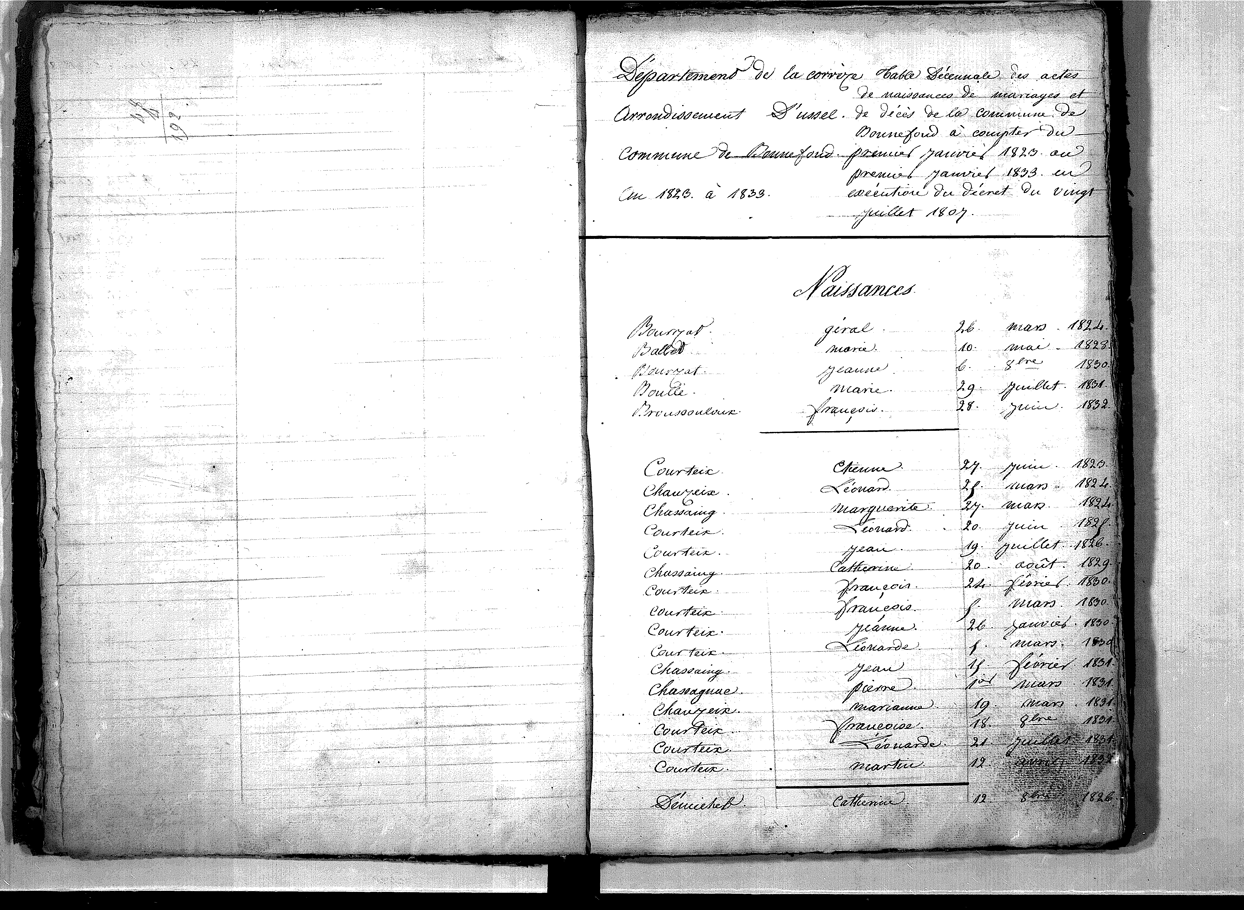 Département de la corrèze
Arrondissement D'ussel.
Commune de Bonnefond.
An 1823. à 1833.
Table Décennale des actes
de naissances de mariages et
de décès de la commune de
Bonnefond à compter du
premier janvier 1823 au
premier janvier 1833 en
exécution du décret du vingt
juillet 1807.
Naissances.
Bourzat. géral. 26. mars. 1824.
Ballet marie. 10. mai. 1828.
Bourzat. jeanne 6. 8bre 1830.
Boulle. marie. 29. juillet 1831.
Broussouloux françois. 28. juin. 1832.
Courteix. Etienne 27. juin. 1823.
Chauzeix. Léonard 25. mars. 1824.
Chassaing marguerite 27. mars. 1824.
Courteix. Léonard. 20. juin 1825.
Courteix. jean. 19. juillet. 1826.
Chassaing. Catherine 20. août. 1829.
Courteix. françois. 24 février. 1830.
Courteix. françois. 5. mars. 1830.
Courteix. jeanne. 26 janvier. 1830.
Courteix. Léonarde 5. mars. 1830
Chassaing. jean 15 février 1831.
Chassagnac. pierre. 1er mars 1831.
Chauzeix. marianne 19. mars. 1831.
Courteix. francoise. 18. 8bre 1831.
Courteix. Léonarde. 21 juillet 1831.
Courteix. martin 12 avril 1832
Démichel. Catherine 12. 8bre 1826
192